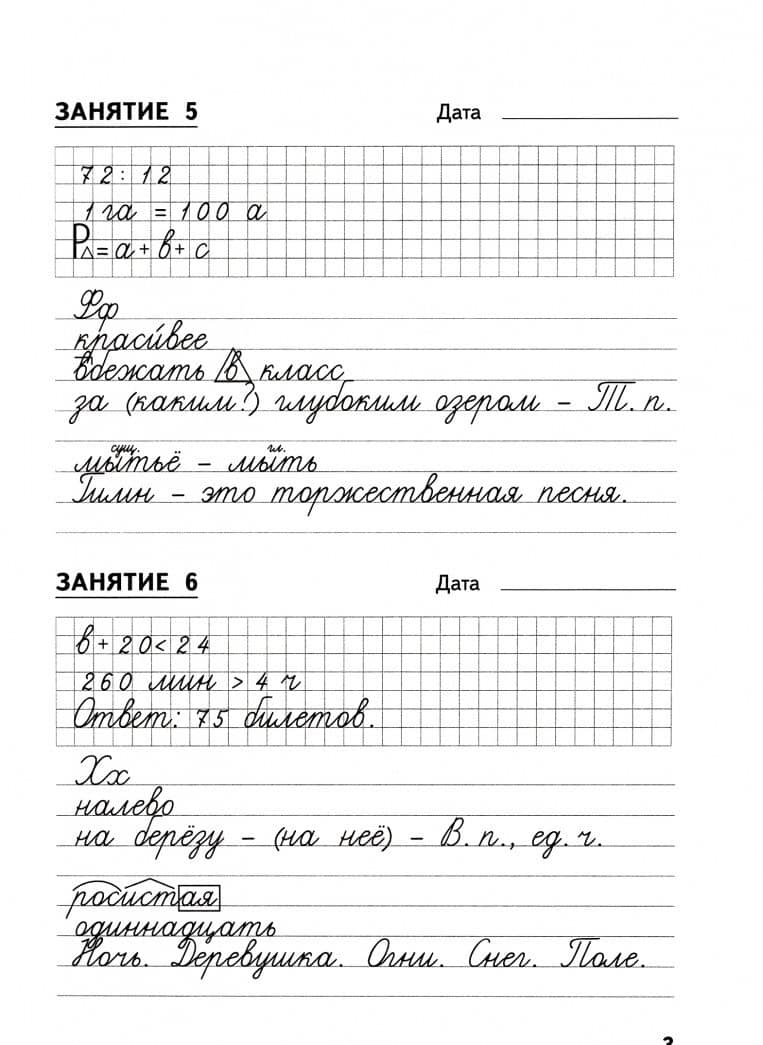 ЗАНЯТИЕ 5 Дата
72 : 12
1 га = 100 а
P△ = a + b + c
Фф
краси́вее
вбежать в класс
за (каким?) глубоким озером – Т. п.
сущ. гл.
мытьё – мыть
Гимн – это торжественная песня.
ЗАНЯТИЕ 6 Дата
в + 20 < 24
260 мин > 4 ч
Ответ: 75 билетов.
Хх
налево
на берёзу – (на неё) – В. п., ед. ч.
росистая
одиннадцать
Ночь. Деревушка. Огни. Снег. Поле.